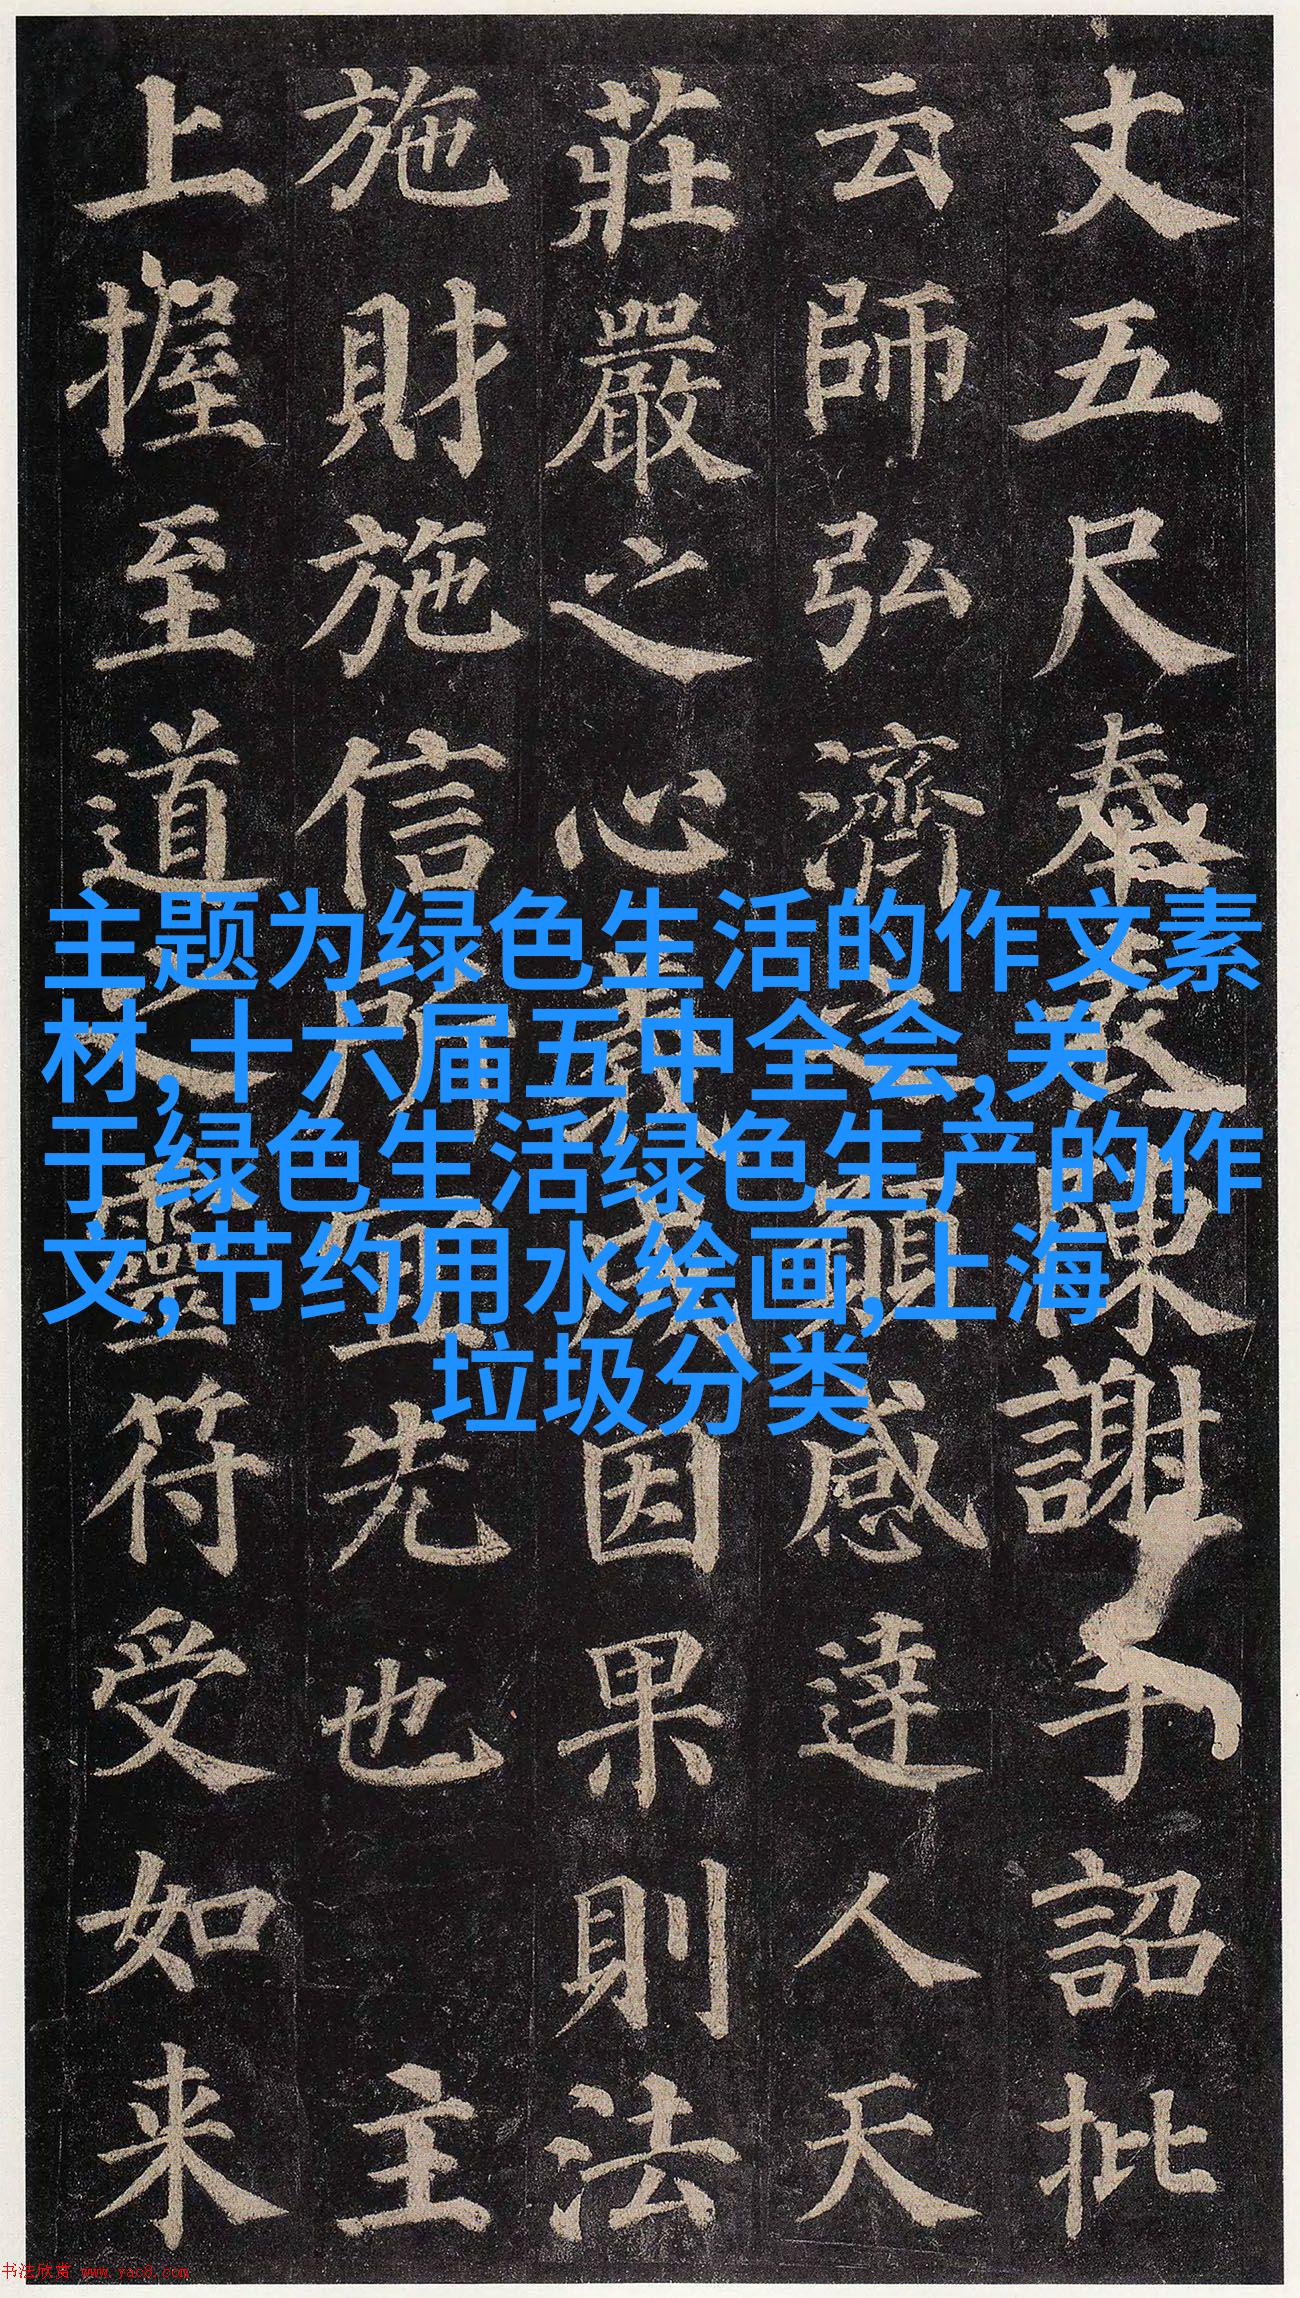 丈五尺奉表陳謝手詔批
云師弘濟之願感達人天
莊嚴之心義成因果則法
施財施信所宜先也 主
上握至道之靈符受如来
主题为绿色生活的作文素
材,十六届五中全会,关
于绿色生活绿色生产的作
文,节约用水绘画,上海
垃圾分类
书法欣赏 www.yac8.com